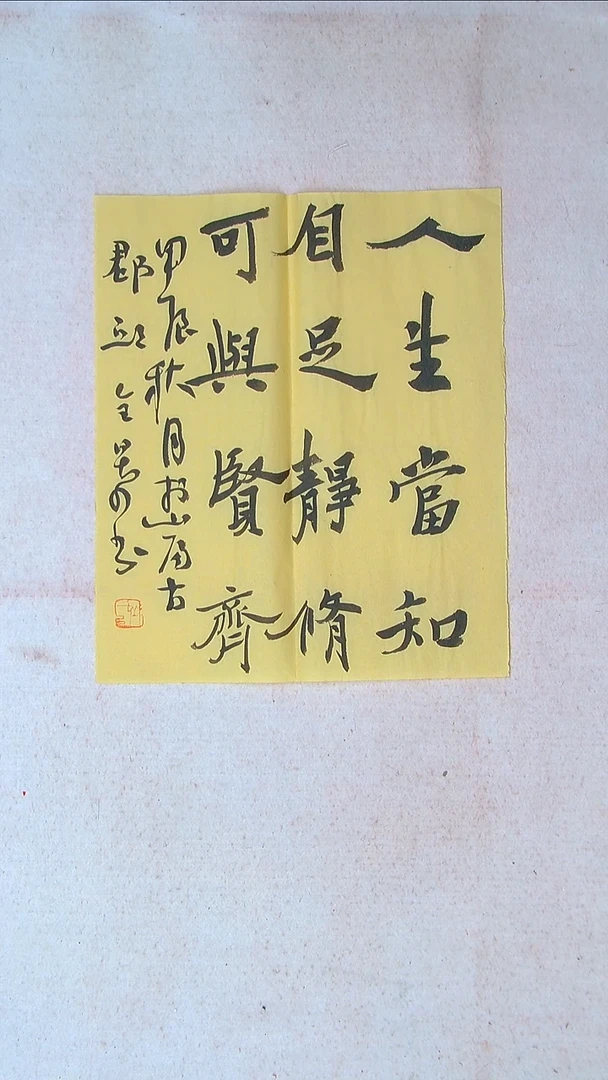 人生當知
自足靜脩
可與賢齊
甲辰秋月於山居古
郡邱
书